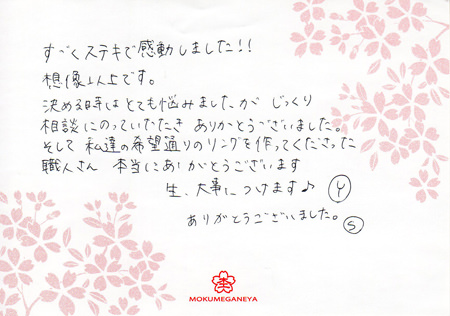 すごくステキで感動しました!!
想像以上です。
決める時はとても悩みましたが じっくり
相談にのっていただき ありがとうございました。
そして 私達の希望通りのリングを作ってくださった
職人さん 本当にありがとうございます
一生、大事につけます♪ Y
ありがとうございました。 S
MOKUMEGANEYA